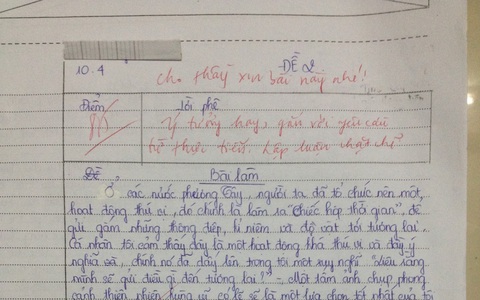 10.4
ĐỀ 2
Cho thầy xin bài này nhé!
Điểm
Lời phê
Ý tưởng hay, gần với yêu cầu
từ thực tiễn. Lập luận chặt chẽ
Đề
Bài làm
Ở các nước phương Tây, người ta đã tổ chức nên một
hoạt động thú vị, đó chính là làm ra "chiếc hộp thời gian", để
gửi gắm những thông điệp, kỉ niệm và đồ vật tới tương lai.
Cá nhân tôi cảm thấy đây là một hoạt động khá thú vị và đầy ý
nghĩa và, chính nó đã dấy lên trong tôi một suy nghĩ "Liệu rằng
mình sẽ gửi điều gì đến tương lai?" - Một tấm ảnh chụp phong
cảnh thiên nhiên hùng vĩ có lẽ sẽ là một lựa chọn tốt nhất của